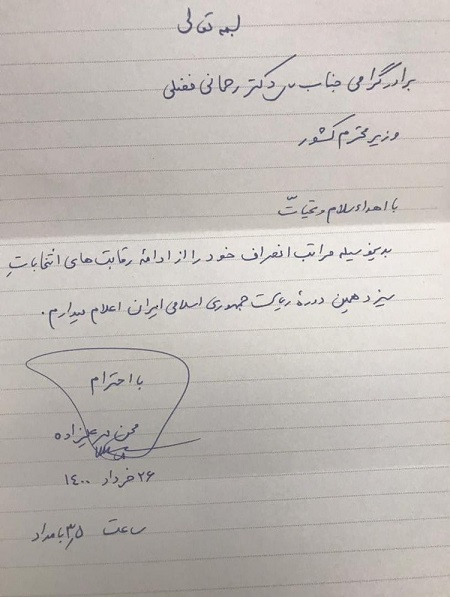 بسمه تعالی
برادر گرامی جناب آقای دکتر رحمانی فضلی
وزیر محترم کشور
با اهداء سلام و تحیات
بدینوسیله مراتب انصراف خود را از ادامهٔ رقابت‌های انتخاباتِ
سیزدهمین دورهٔ ریاست جمهوری اسلامی ایران اعلام میدارم.
با احترام
محسن مهرعلیزاده
۲۶ خرداد ۱۴۰۰
ساعت ۳٫۵ بامداد